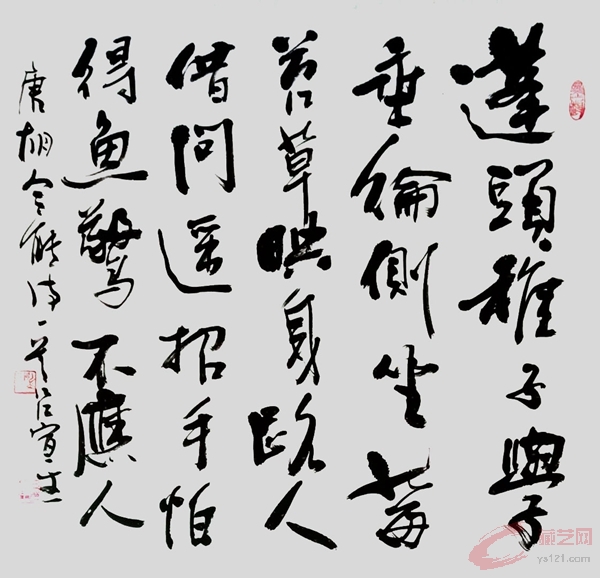 蓬頭稚子學
垂綸側坐莓
苔草映身路人
借問遥招手怕
得魚驚不應人
唐胡令能诗一首
藏艺网
ys121.com